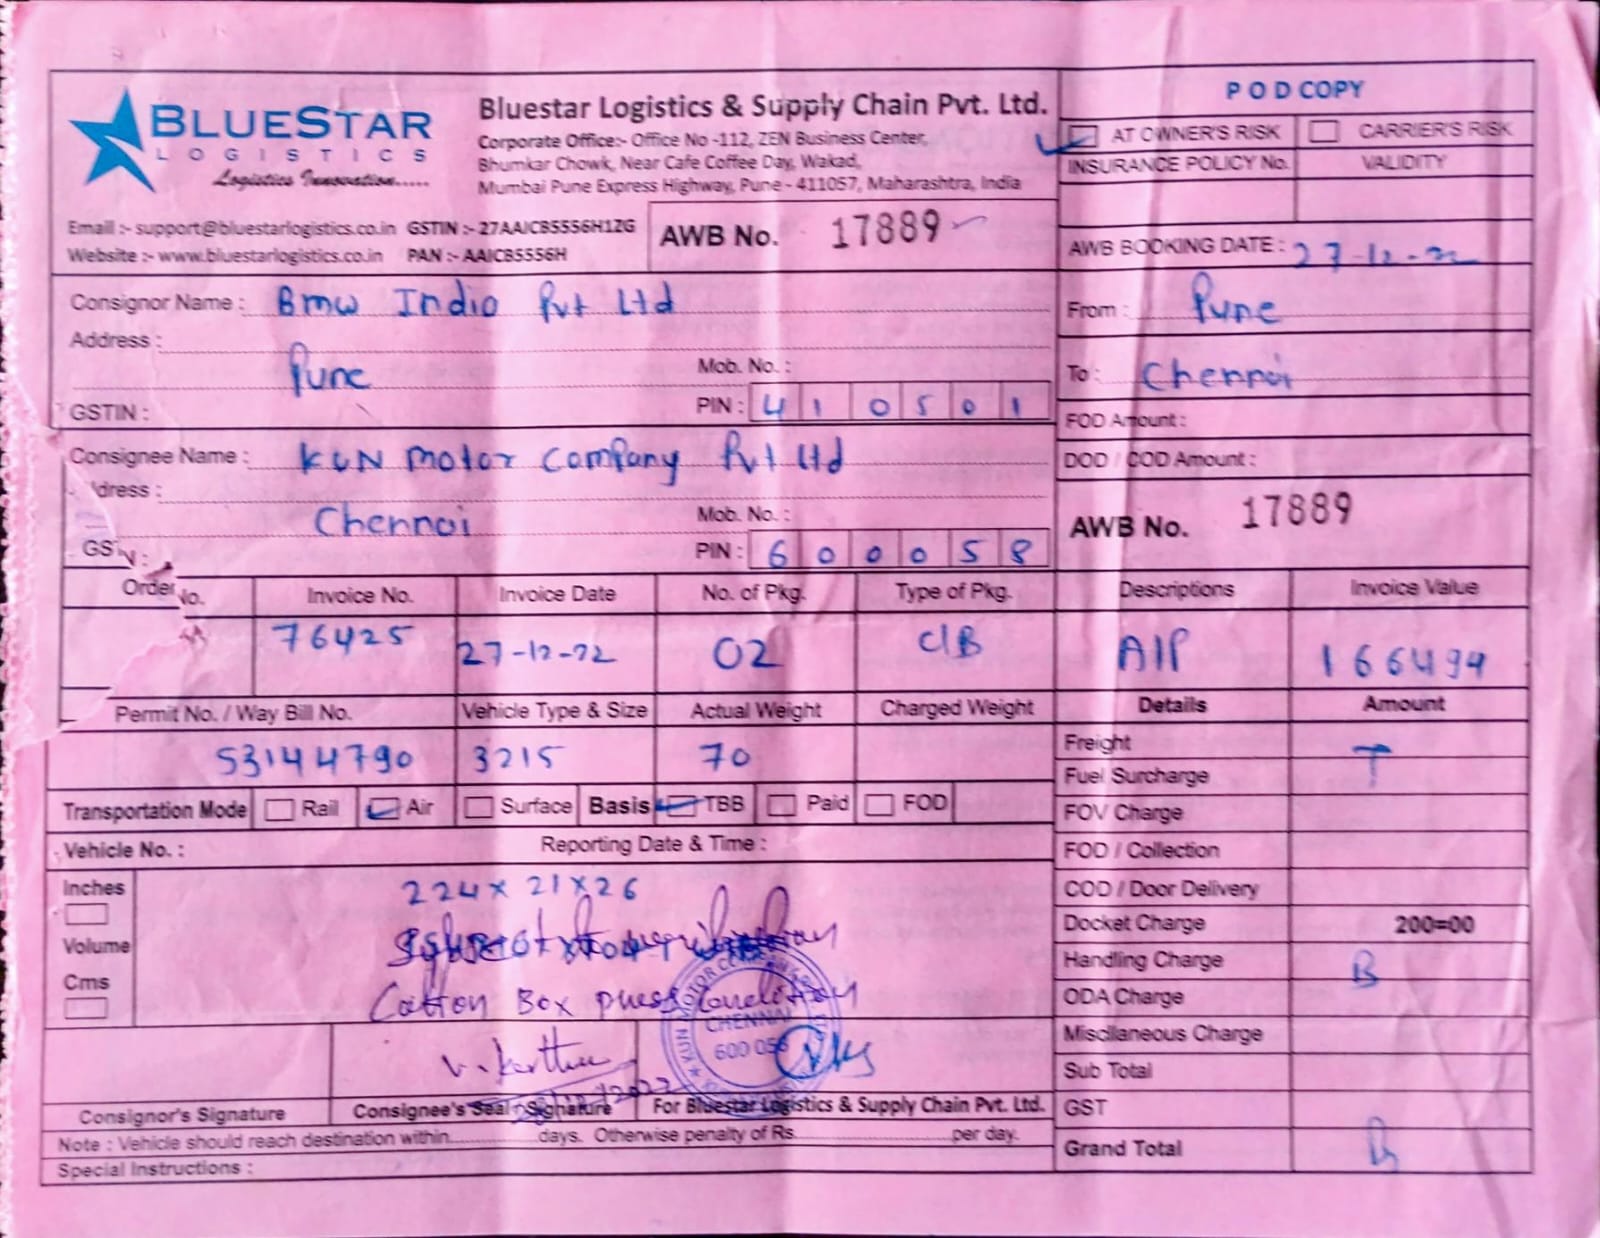 POD COPY
BLUESTAR
LOGISTICS
Logistics Innovation.....
Bluestar Logistics & Supply Chain Pvt. Ltd.
Corporate Office:- Office No -112, ZEN Business Center,
Bhumkar Chowk, Near Cafe Coffee Day, Wakad,
Mumbai Pune Express Highway, Pune - 411057, Maharashtra, India
AT OWNER'S RISK CARRIER'S RISK
INSURANCE POLICY No. VALIDITY
Email :- support@bluestarlogistics.co.in GSTIN :- 27AAICB5556H1ZG
Website :- www.bluestarlogistics.co.in PAN :- AAICB5556H
AWB No. 17889
AWB BOOKING DATE : 27-12-22
Consignor Name : Bmw India Pvt Ltd
From : Pune
Address :
Pune Mob. No. :
To : Chennai
GSTIN : PIN : 410501
FOD Amount :
Consignee Name : KUN Motor Company Pvt Ltd
DOD / COD Amount :
dress :
Chennai Mob. No. :
AWB No. 17889
GS N : PIN : 600058
Order No. Invoice No. Invoice Date No. of Pkg. Type of Pkg. Descriptions Invoice Value
76425 27-12-22 02 C/B A/P 166494
Permit No. / Way Bill No. Vehicle Type & Size Actual Weight Charged Weight Details Amount
53144790 3215 70
Freight T
Fuel Surcharge
Transportation Mode Rail Air Surface Basis TBB Paid FOD
FOV Charge
Vehicle No. : Reporting Date & Time :
FOD / Collection
Inches 224 x 21 x 26
COD / Door Delivery
Docket Charge 200=00
Volume
Handling Charge B
Cms
Box
ODA Charge
CHENNAI
600 056
Miscllaneous Charge
Sub Total
Consignor's Signature Consignee's Seal Signature For Bluestar Logistics & Supply Chain Pvt. Ltd.
GST
Note : Vehicle should reach destination within..............days. Otherwise penalty of Rs..............per day.
Grand Total B
Special Instructions :